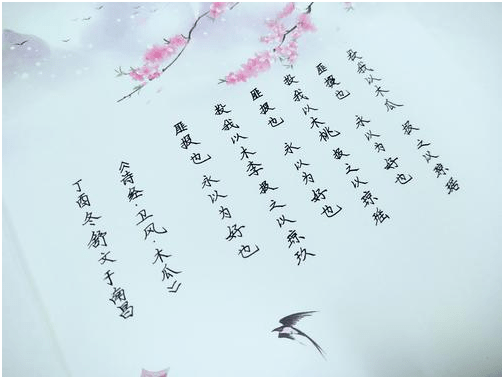 投我以木瓜 报之以琼琚
匪报也 永以为好也
投我以木桃 报之以琼瑶
匪报也 永以为好也
投我以木李 报之以琼玖
匪报也 永以为好也
《诗经·卫风·木瓜》
丁酉冬舒文于南昌